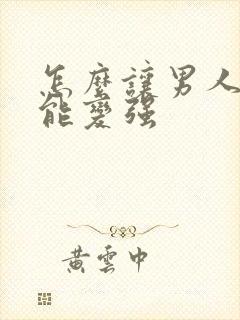 怎麼讓男人
能變強
黃雲中